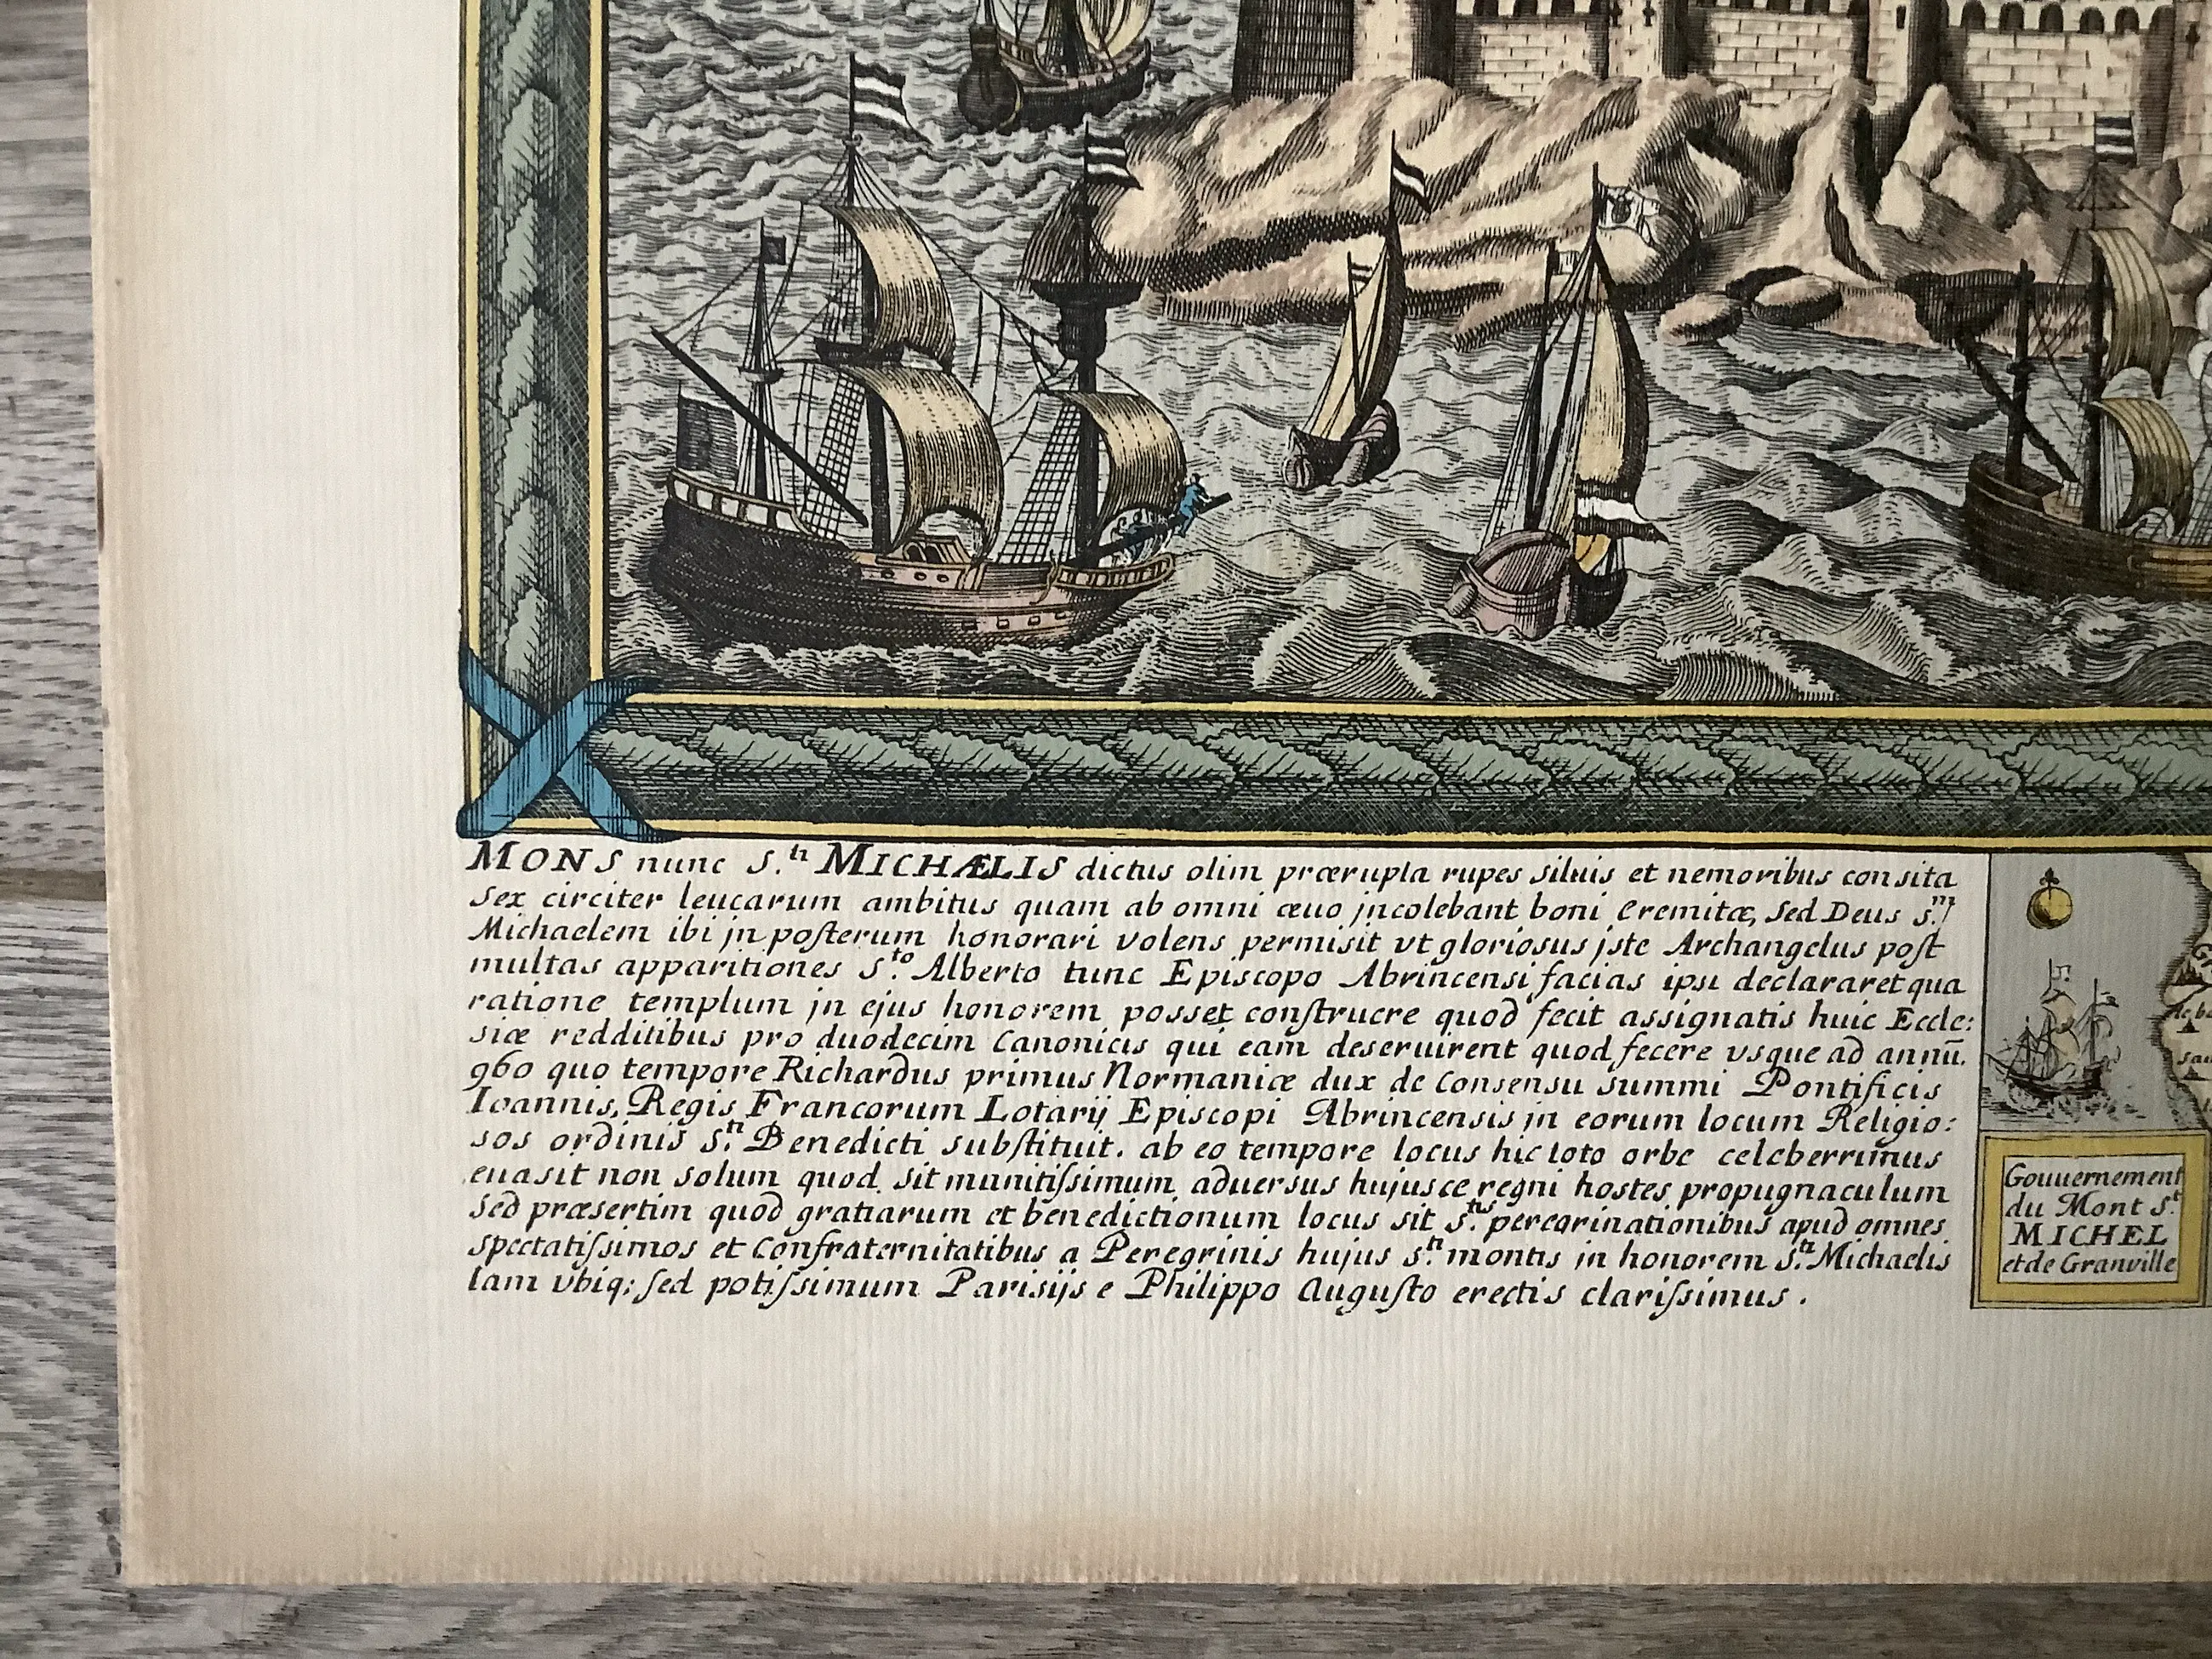 MONS nunc S.ti MICHÆLIS dictus olim prærupta rupes siluis et nemoribus consita
sex circiter leucarum ambitus quam ab omni æuo jncolebant boni Eremitæ, sed Deus S.m
Michaelem ibi jn posterum honorari volens permisit vt gloriosus jste Archangelus post
multas apparitiones S.to Alberto tunc Episcopo Abrincensi facias ipsi declararet qua
ratione templum jn ejus honorem posset construere quod fecit assignatis huic Eccle:
siæ redditibus pro duodecim Canonicis qui eam deseruirent quod fecere vsque ad annū.
960 quo tempore Richardus primus Normaniæ dux de Consensu Summi Pontificis
Ioannis, Regis Francorum Lotarij Episcopi Abrincensis jn eorum locum Religio:
sos ordinis S.ti Benedicti substituit. ab eo tempore locus hic toto orbe celeberrimus
euasit non solum quod sit munitissimum aduersus hujusce regni hostes propugnaculum
sed præsertim quod gratiarum et benedictionum locus sit S.tis peregrinationibus apud omnes
spectatissimos et Confraternitatibus a Peregrinis hujus S.ti montis jn honorem S.ti Michaelis
tam vbiq; sed potissimum Parisijs e Philippo Augusto erectis clarissimus.
Gouuernement
du Mont S.t
MICHEL
et de Granville